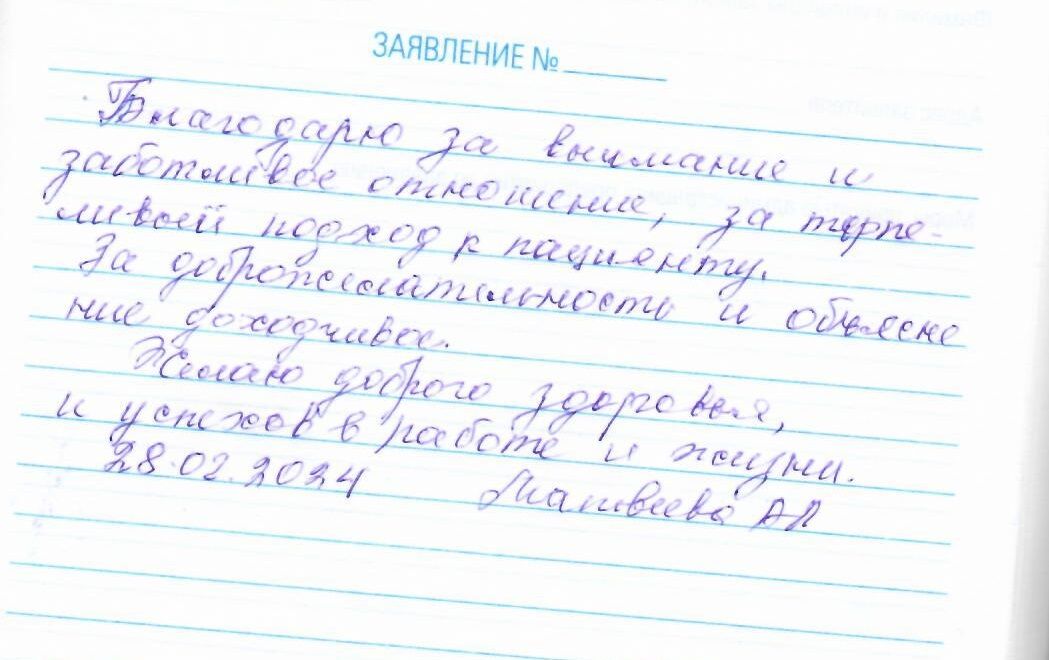 ЗАЯВЛЕНИЕ № ______
Благодарю за внимание и
заботливое отношение, за терпе-
ливый подход к пациенту.
За доброжелательность и объясне
ние доходчивое.
Желаю доброго здоровья,
и успехов в работе и жизни.
28.02.2024 Матвеева АП